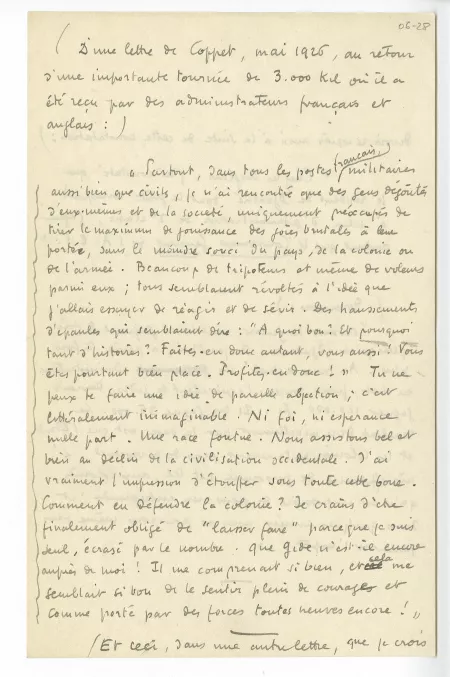 06-28
(D'une lettre de Coppet, mai 1926, au retour
d'une importante tournée de 3.000 Kil où il a
été reçu par des administrateurs français et
anglais :)
" Partout, dans tous les postes français, militaires
aussi bien que civils, je n'ai rencontré que des gens dégoûtés
d'eux-mêmes et de la société, uniquement préoccupés de
tirer le maximum de jouissance des joies brutales à leur
portée, sans le moindre souci du pays, de la colonie ou
de l'armée. Beaucoup de tripoteurs et même de voleurs
parmi eux ; tous semblaient révoltés à l'idée que
j'allais essayer de réagir et de sévir. Des haussements
d'épaules qui semblaient dire : "A quoi bon ? Et pourquoi
tant d'histoires ? Faites-en donc autant, vous aussi ! Vous
êtes pourtant bien placé. Profitez-en donc ! " Tu ne
peux te faire une idée de pareille abjection ; c'est
littéralement inimaginable. Ni foi, ni espérance
nulle part. Une race foutue. Nous assistons bel et
bien au déclin de la civilisation occidentale. J'ai
vraiment l'impression d'étouffer sous toute cette boue.
Comment en défendre la colonie ? Je crains d'être
finalement obligé de "laisser faire" parce que je suis
seul, écrasé par le nombre. Que Gide n'est-il encore
auprès de moi ! Il me comprenait si bien, et cela me
semblait si bon de le sentir plein de courage et
comme porté par des forces toutes neuves encore ! "
(Et ceci, dans une autre lettre, que je crois